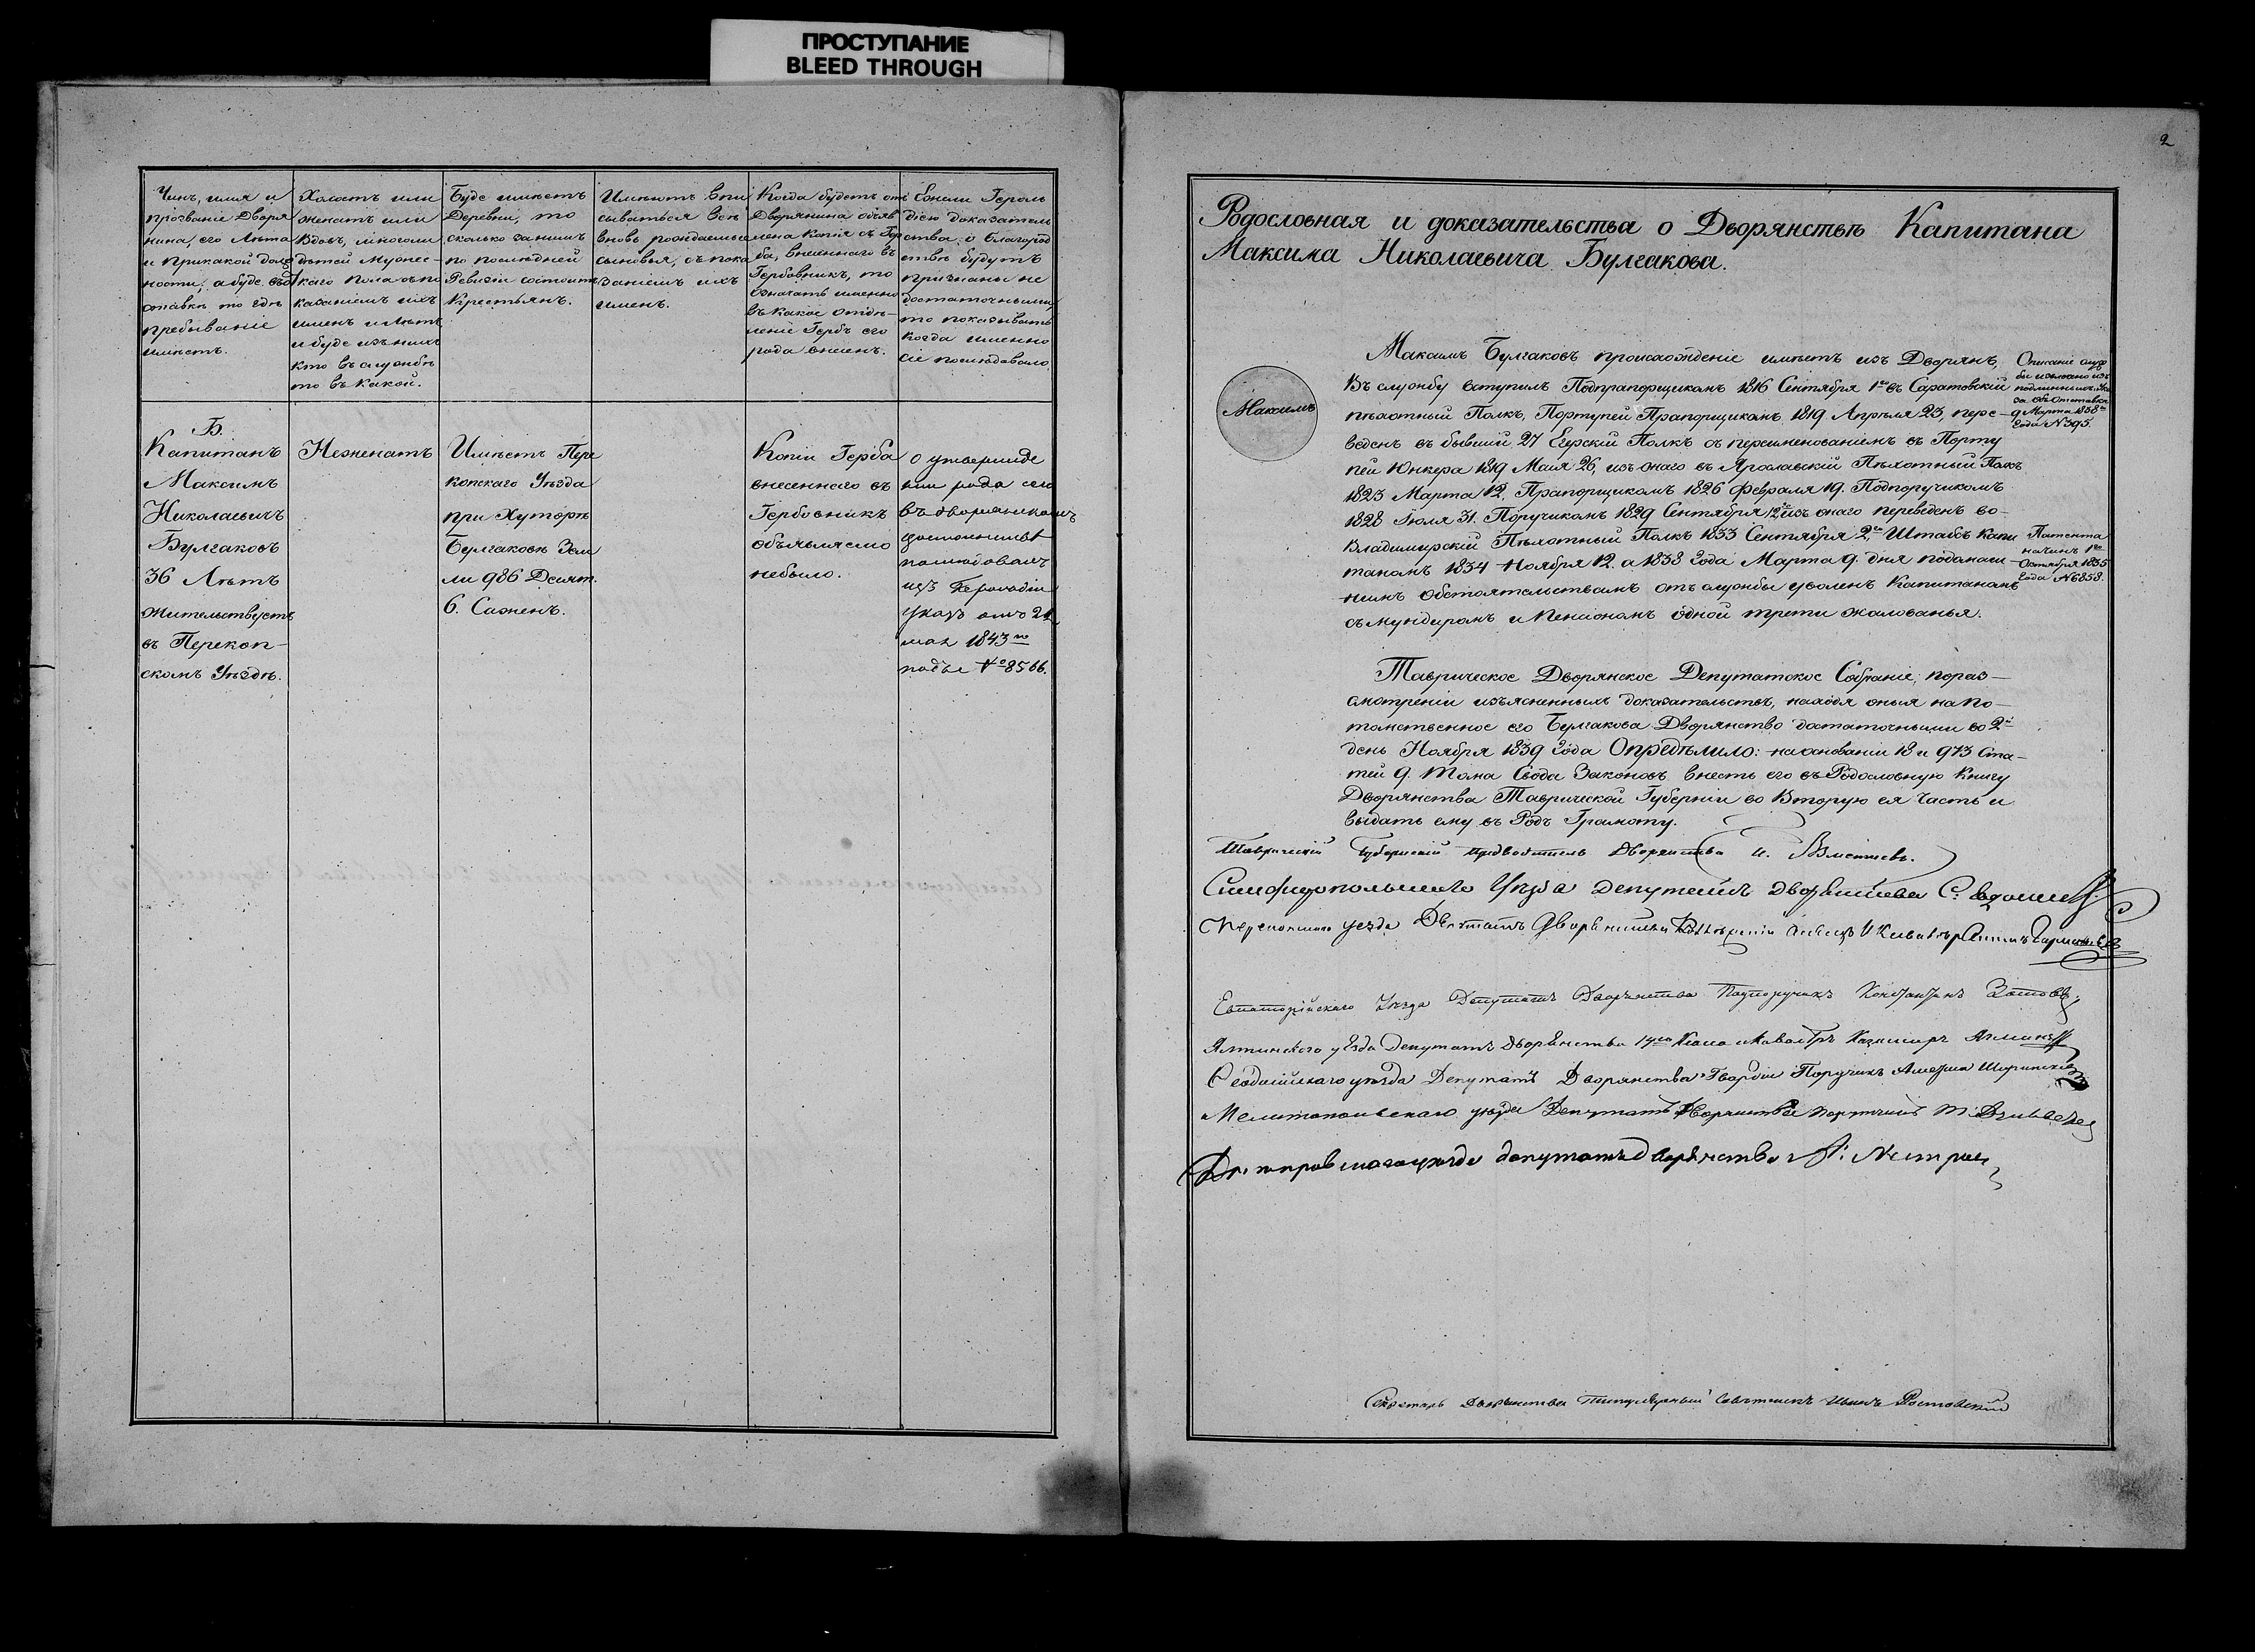 ПРОСТУПАНИЕ
BLEED THROUGH
Чинъ, имя и
прозваніе Дворя
нина, его Лѣта
и при какой долж
ности, а буде въ от
ставкѣ то гдѣ
пребываніе
имѣетъ.
Холостъ или
женатъ или
Вдовъ, многоли
дѣтей Мужес-
каго пола съ по
казаніемъ ихъ
именъ и лѣтъ
и буде изъ нихъ
кто въ службѣ
то въ какой.
Буде имѣетъ
Деревни, то
сколько за нимъ
по последней
Ревизіи состоитъ
Крестьянъ.
Имѣютъ впи
сываться всѣ
вновь рождаемые
сыновья, съ пока
заніемъ ихъ
именъ.
Когда будетъ отъ
Дворянина объяв
лена копія съ Гер
ба, внесеннаго въ
Гербовникъ, то
означать именно
въ какое отдѣ-
леніе Гербъ его
рода внесен.
Ежели Героль
діею доказатель
ства о благород
ствѣ будутъ
признаны не
достаточными,
то показывать
когда именно
сіе последовало
Б.
Капитанъ
Максимъ
Николаевичъ
Булгаковъ
36 Лѣтъ
жительствуетъ
въ Перекоп-
скомъ Уѣздѣ.
Неженатъ
Имѣетъ Пере
копскаго Уѣзда
при Хуторѣ
Булгаковѣ Зем
ли 986 Десят.
6. Саженъ.
Копіи Герба
внесеннаго въ
Гербовникъ
объявляемо
небыло.
о утвержде
ніи рода сего
въ дворянскомъ
достоинствѣ
последовалъ
изъ Герольдіи
указъ отъ 21
мая 1843 го
года № 8566.
2
Родословная и доказательства о Дворянствѣ Капитана
Максима Николаевича Булгакова.
Максимъ
Максимъ Булгаковъ происхожденіе имѣетъ изъ Дворянъ,
Въ службу вступилъ Подпрапорщикомъ 1816 Сентября 1го въ Саратовскій
пѣхотный Полкъ, Портупей Прапорщикомъ 1819 Апрѣля 23, пере-
веденъ въ бывшій 27 Егерскій Полкъ съ переименованіемъ въ Порту
пей Юнкера 1819 Маія 26, изъ онаго въ Ярославскій Пѣхотный Полкъ
1823 Марта 12. Прапорщикомъ 1826 Февраля 19. Подпоручикомъ
1828 Іюля 31. Поручикомъ 1829 Сентября 12 изъ онаго переведенъ во
Владимирскій Пѣхотный Полкъ 1833 Сентября 2го Штабсъ Капи
таномъ 1834 Ноября 12. а 1838 года Марта 9. дня по домаш-
нимъ обстоятельствамъ отъ службы уволенъ Капитаномъ
съ мундиромъ и пенсіономъ одной трети жалованья.
Описаніе служ
бы изложено изъ
подлиннаго Ука
за объ отставкѣ
9 Марта 1838го
года № 395.
Патента
на чинъ 1го
Октября 1835
года № 6858.
Таврическое Дворянское Депутатское Собраніе, по раз-
смотреніи изъясненныхъ доказательствъ, находя оныя на по-
томственное его Булгакова Дворянство достаточными во 2й
день Ноября 1839 года Опредѣлило: на основаніи 18 и 973 Ста-
тей 9. Тома Свода Законовъ внесть его въ Родословную Книгу
Дворянства Таврической Губерніи во Вторую ея Часть и
выдать ему въ Родъ Грамоту.
Таврическій Губернскій предводитель дворянства
Симферопольскаго Уѣзда депутатъ дворянства С.
Перекопскаго уезда Депутатъ Дворянства
Евпаторійскаго Уѣзда Депутатъ Дворянства Подпоручикъ Константинъ Зотовъ.
Ялтинского уѣзда Депутатъ Дворянства 14го Класа и Кавалеръ Казимиръ
Феодосійскаго уѣзда Депутатъ Дворянства Гвардіи Поручикъ Ширинскій
Мелитопольскаго уезда Депутатъ Дворянства поручикъ
Днепровскаго уезда депутатъ дворянства
Секретарь Дворянства Титулярный Советникъ Ростовскій